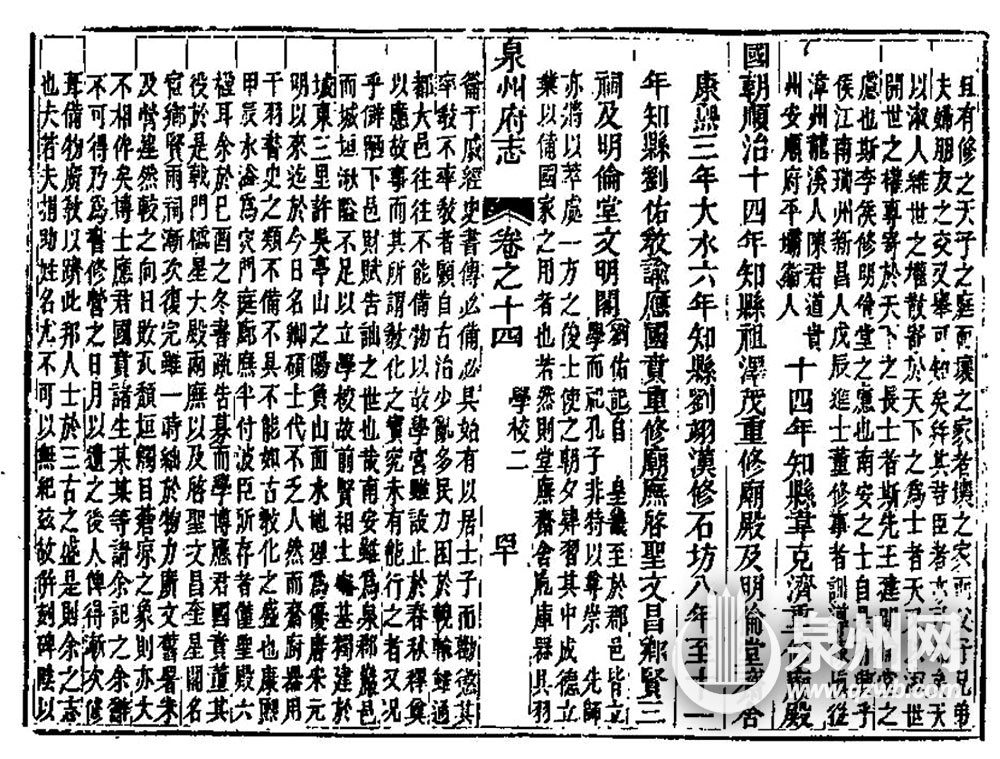 且有修之天子之庭而壞之家者壞之家而父子兄弟
夫婦朋友之交又舉可知矣
以淑人維世之權散寄於天下之爲士者天
開世之權專寄於天下之長士者斯先王建
慮也斯李侯修明倫堂之意也南安之士自
侯江南瑞州新昌人戊辰進士董修事者訓導
漳州龍溪人陳君道貴
州安順府平壩衞人 十四年知縣韋克濟重 廟殿
國朝順治十四年知縣祖澤茂重修廟殿及明倫堂 舍
康熙三年大水六年知縣劉翊漢修石坊八年至十一
年知縣劉佑教諭應國賁重修廟廡啓聖文昌鄉賢三
祠及明倫堂文明閣 劉佑記自 皇畿至於郡邑皆立
學而祀孔子非特以尊崇 先師
亦將以萃處一方之俊士使之朝夕肄習其中成德立
業以備國家之用者也若然則堂廡齋舍庖庫器具羽
泉州府志 卷之十四 學校二
籥干戚經史書傳必備必具始有以居士子而勸德其
率教不率教者顧自古治少亂多民力困於輓輸雖通
都大邑往往不能備物以故學宮雖設止於春秋釋奠
以應故事而其所謂教化之實究未有能行之者又況
乎僻陋下邑財賦告詘之世也哉南安雖爲泉郡巖邑
而城垣湫隘不足以立學校故前賢相士 基獨建於
城東三里許吳亭山之陽負山面水地理爲優唐宋元
明以來迄於今日名卿碩士代不乏人然而齋廚器用
干羽書史之類不備不具不能如古教化之盛也康熙
甲辰水溢爲災門庭廊廡半付波臣所存者僅聖殿六
楹耳余於己酉之冬書疏告募而學博應君國賁董其
役於是戟門櫺星大殿兩廡以及啓聖文昌奎星閣名
宦鄉賢兩祠漸次復完雖一時絀於物力廣文舊署未
及營葺然較之向日敗瓦頹垣觸目蕭凉之象則亦大
不相侔矣博士應君國賁諸生某某等請余記之余辭
不可得乃爲書修營之日月以遺之後人俾得漸次修
葺備物廣教以躋此邦人士於三古之盛是則余之志
也夫若夫捐助姓名尤不可以無紀茲故併刻碑陰以
泉州网
www.qzwb.com